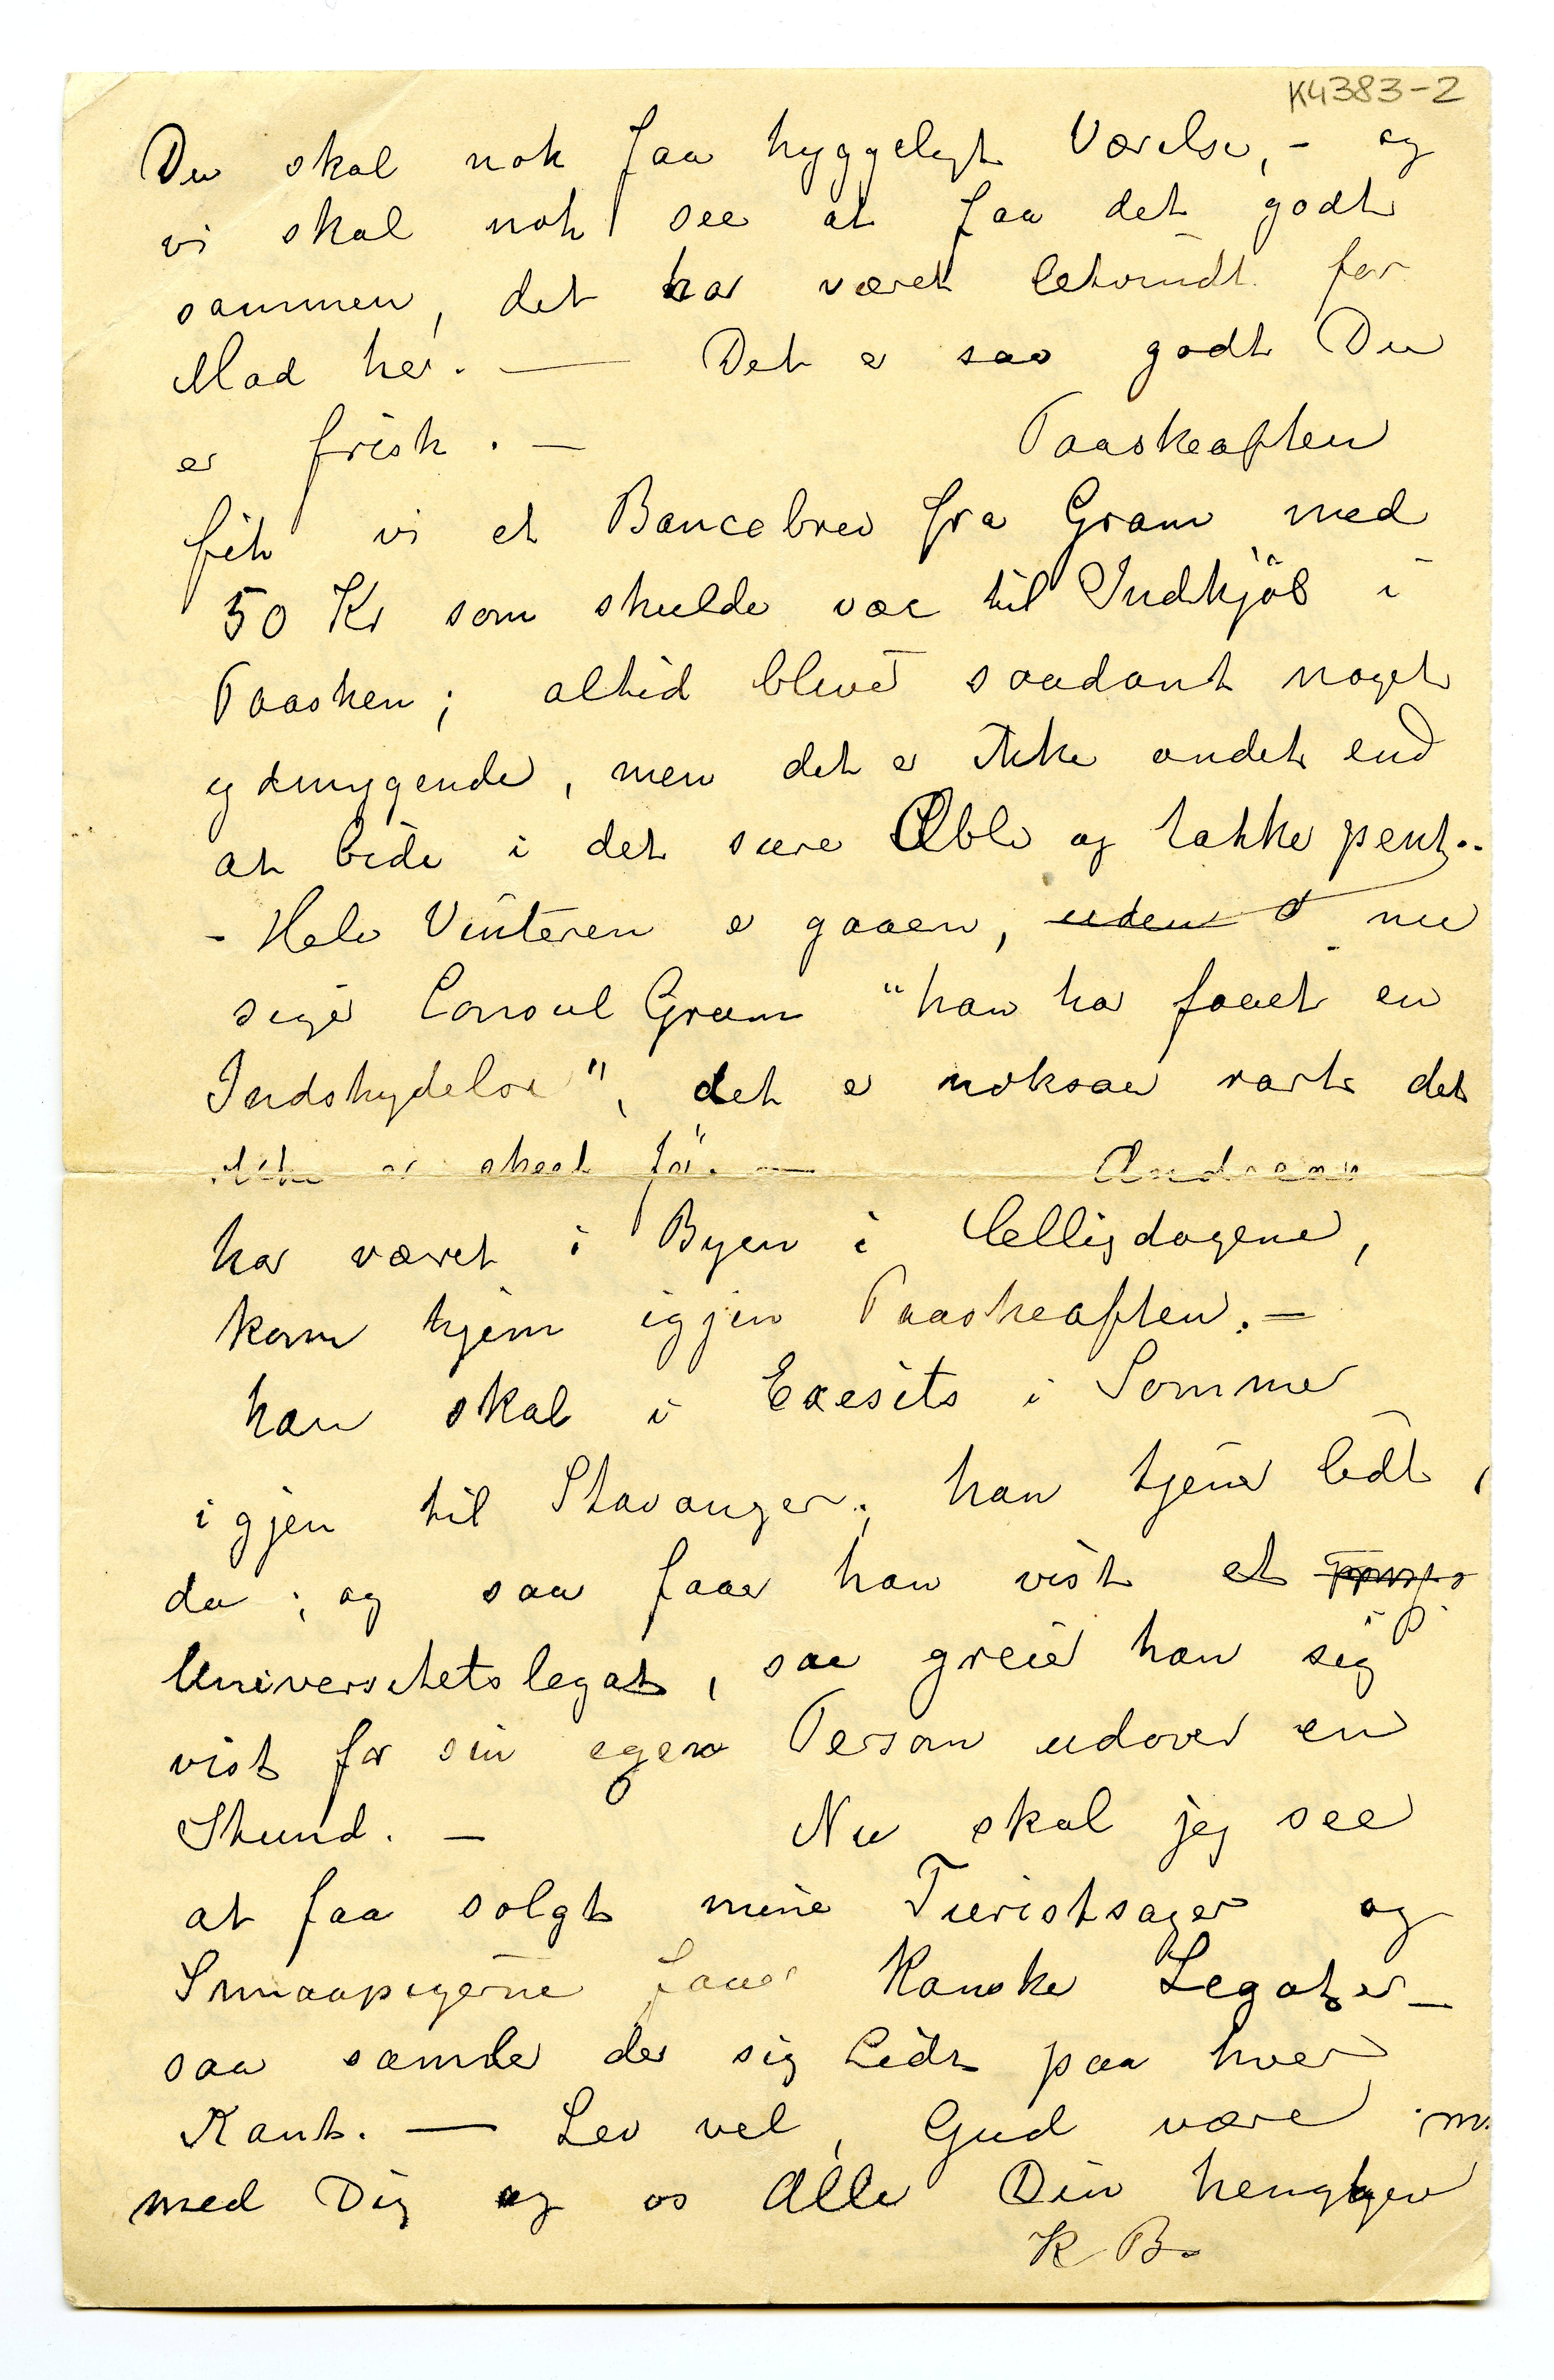 K4383-2
Du skal nok faa hyggeligt Værelse, - og
vi skal nok see at faa det godt
sammen, det har været letvindt for
Mad her. — Det er saa godt Du
er frisk. — Paaskeaften
fik vi et Bancobrev fra Gram med
50 Kr som skulde vær til Indkjöb i
Paasken; altid bliver saadant noget
ydmygende, men det er ikke andet end
at bide i det sure Æble og takke pent..
- Hele Vinteren er gaaen, uden at nu
siger Consul Gram "han har faaet en
Indskydelse", det er noksaa rart det
ikke er skeet för. — Andreas
har været i Byen i Helligdagene,
kom hjem igjen Paaskeaften. —
han skal i Exesits i Sommer
igjen til Stavanger; han tjener lidt
da; og saa faaer han vist et
Universitetslegat, saa greier han sig
vist for sin egen Person udover en
Stund. — Nu skal jeg see
at faa solgt mine Turistsager og
Smaapigerne faaer kanske Legater —
saa samler der sig lidt paa hver
Kant. — Lev vel, Gud være m.
med Dig og os Alle Din hengivn
K B.